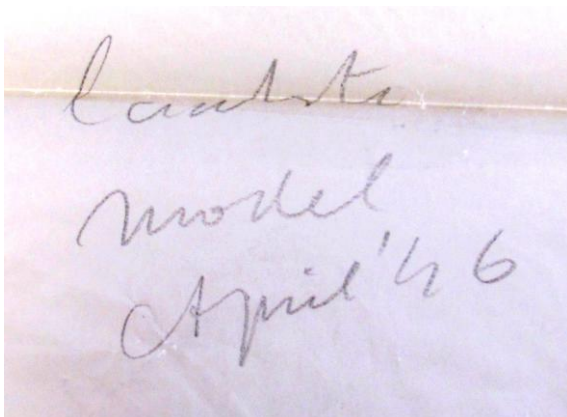 laatste
model
April '46